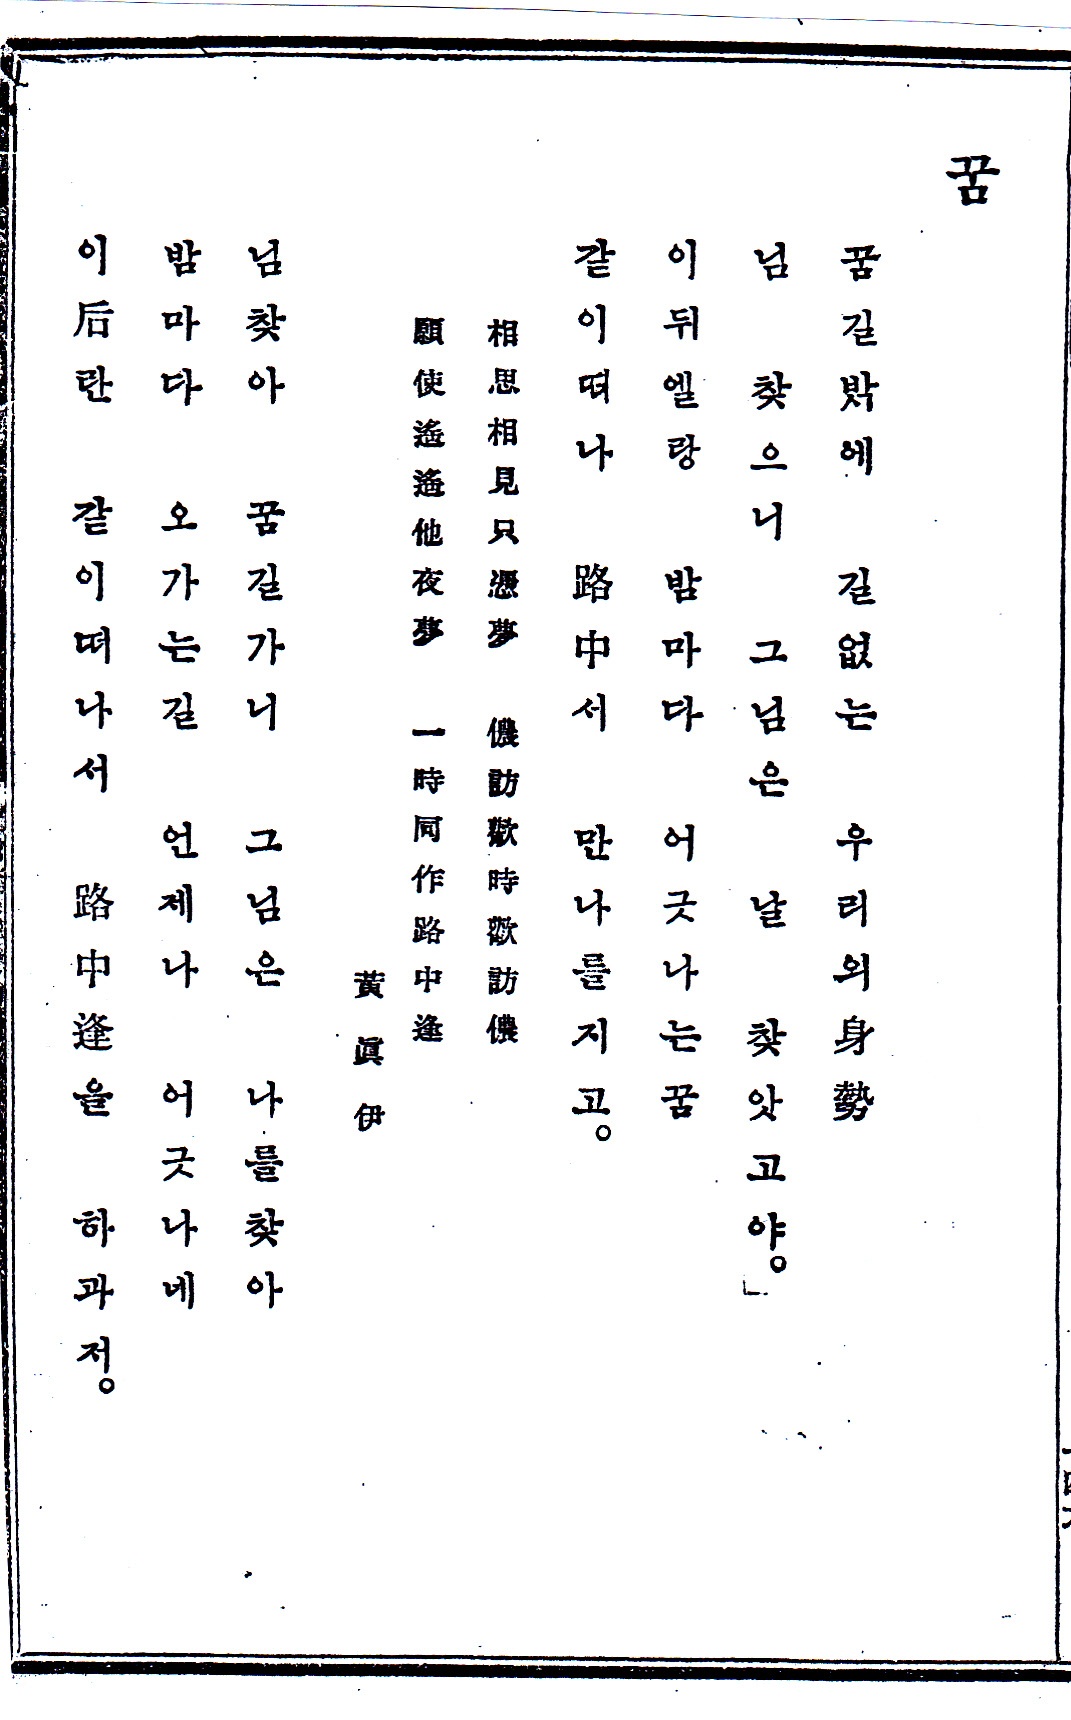 꿈
꿈길밖에 길없는 우리의身勢
님 찾으니 그님은 날 찾앗고야。」
이뒤엘랑 밤마다 어긋나는꿈
같이떠나 路中서 만나를지고。
相思相見只憑夢 儂訪歡時歡訪儂
願使遙遙他夜夢 一時同作路中逢
黃眞伊
님찾아 꿈길가니 그님은 나를찾아
밤마다 오가는길 언제나 어긋나네
이后란 같이떠나서 路中逢을 하과저。